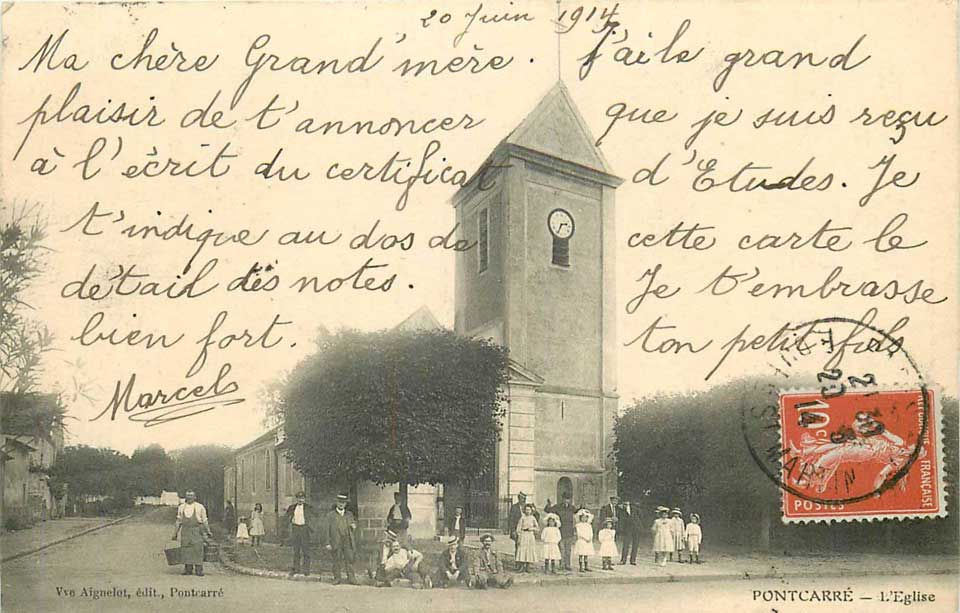 20 Juin 1914
Ma chère Grand'mère. J'ai le grand
plaisir de t'annoncer que je suis reçu
à l'écrit du certificat d'Etudes. Je
t'indique au dos de cette carte le
détail des notes. Je t'embrasse
bien fort. ton petit fils
Marcel
10c
POSTES
FRANÇAISE
Vve Aignelot, édit., Pontcarré
PONTCARRÉ — L'Eglise